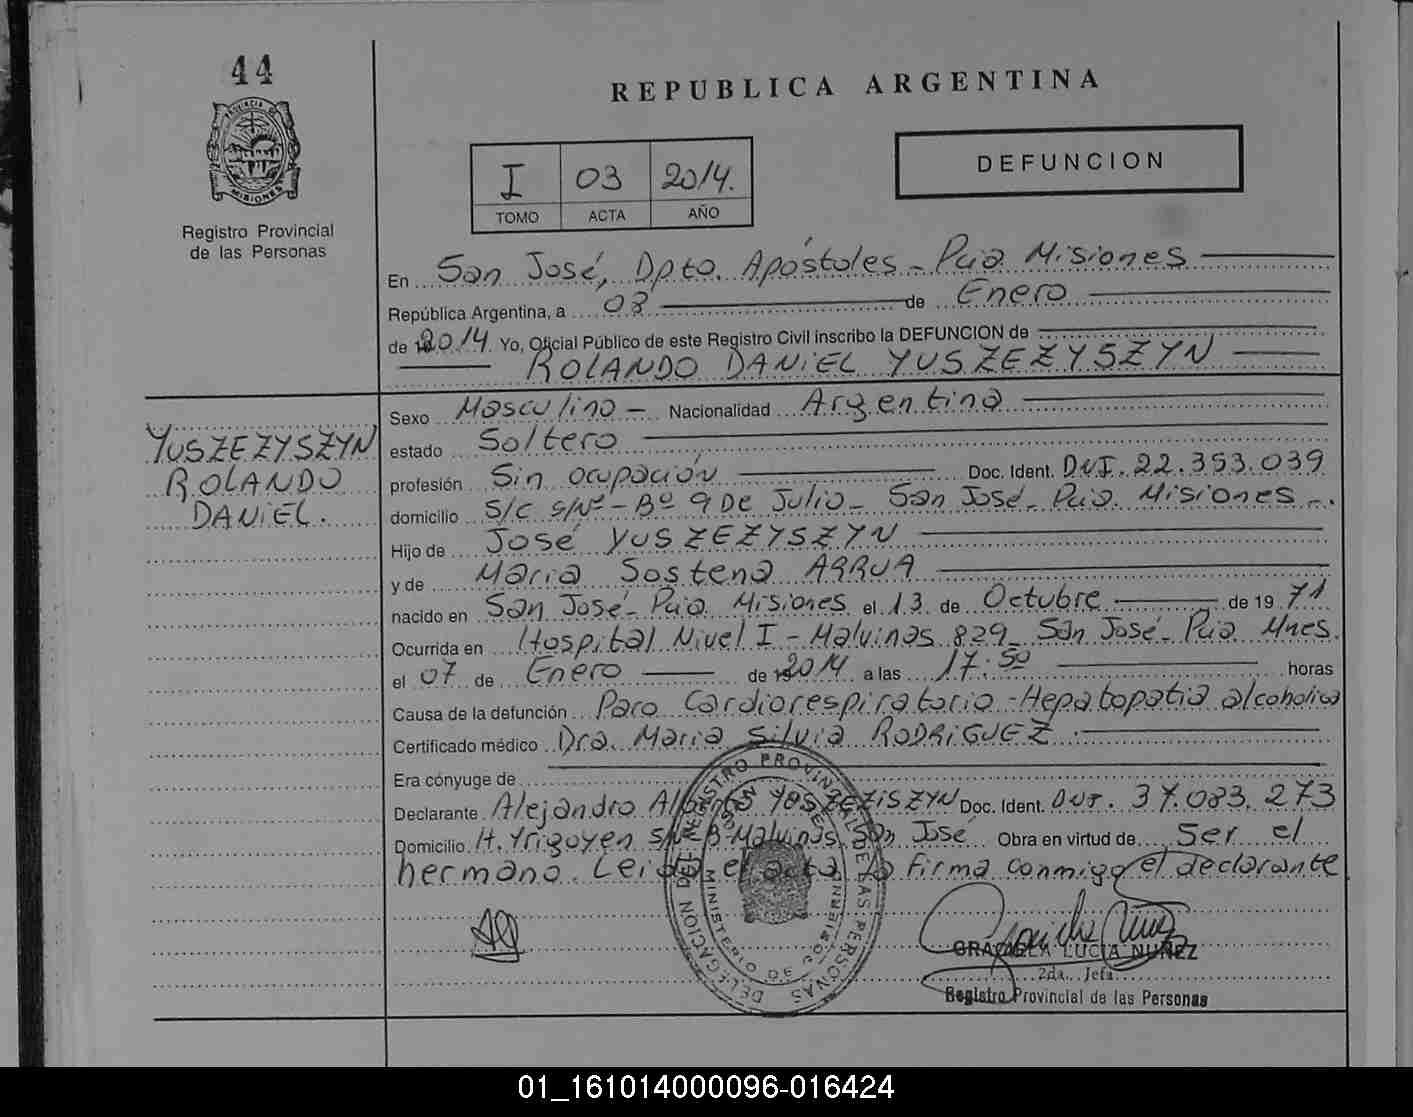 44
REPUBLICA ARGENTINA
PROVINCIA DE
MISIONES
Registro Provincial
de las Personas
I 03 2014.
TOMO ACTA AÑO
DEFUNCION
En San José, Dpto. Apóstoles - Pcia Misiones
República Argentina, a 08 de Enero
de 2014. Yo, Oficial Público de este Registro Civil inscribo la DEFUNCION de
ROLANDO DANIEL YUSZEZYSZYN
YUSZEZYSZYN
ROLANDO
DANIEL.
Sexo Masculino - Nacionalidad Argentina
estado Soltero
profesión Sin ocupación Doc. Ident. DNI. 22.353.039
domicilio S/C S/Nº - Bº 9 De Julio - San José - Pcia. Misiones -.
Hijo de José YUSZEZYSZYN
y de Maria Sostena ARRUA
nacido en San José - Pcia. Misiones el 13 de Octubre de 1971
Ocurrida en Hospital Nivel I - Malvinas 829 - San José - Pcia Mnes.
el 07 de Enero de 2014 a las 17:50 horas
Causa de la defunción Paro Cardiorespiratorio - Hepatopatia alcoholica
Certificado médico Dra. Maria Silvia RODRIGUEZ.
Era cónyuge de
Declarante Alejandro Alberto YUSZEZISZYN Doc. Ident. DNI. 37.083.273
Domicilio H. Yrigoyen S/Nº Bº Malvinas San José Obra en virtud de Ser el
hermano. Leida el acta la firma conmigo el declarante
DELEGACION DEL REGISTRO PROVINCIAL DE LAS PERSONAS
SAN JOSE
MINISTERIO DE GOBIERNO
GRACIELA LUCIA NUÑEZ
2da. Jefa
Registro Provincial de las Personas
01_161014000096-016424